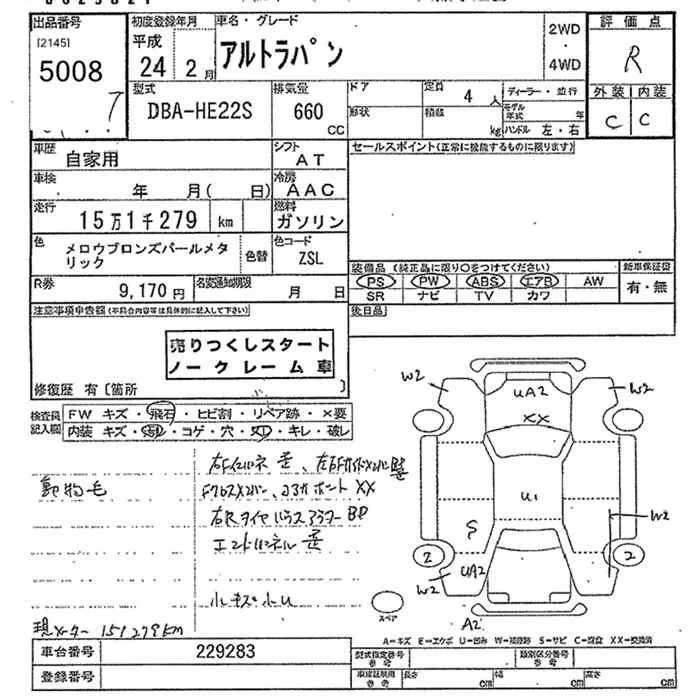 出品番号 初度登録年月 車名・グレード 2WD ・ 4WD 評価点
[2145] 5008 7
平成 24 年 2 月 アルトラパン R
型式 DBA-HE22S 排気量 660 CC
ドア 定員 4 人 ディーラー・並行
形状 積載 kg モデル年式 年 ハンドル 左・右
外装 内装
C C
車歴 自家用 シフト AT
セールスポイント(正常に機能するものに限ります)
車検 年 月( 日) 冷房 AAC
走行 15万1千279 km 燃料 ガソリン
色 メロウブロンズパールメタリック 色替 色コード ZSL
装備品(純正品に限り○をつけてください) 新車保証書
PS PW ABS エアB AW 有・無
SR ナビ TV カワ
R券 9,170円 名変通知期限 月 日
後日品
注意事項申告書(不具合内容等は具体的に記入して下さい)
売りつくしスタート
ノークレーム車
修復歴 有〔箇所 〕
検査員記入欄 FW キズ・飛石・ヒビ割・リペア跡・×要
内装 キズ・・コゲ・穴・・キレ・破レ
動物毛
XX
小キズ小U
現メーター 151279KM
W2 W2
UA2
XX
U1
S W2
2 2
UA2
W2
A2
スペア
A=キズ E=エクボ U=凹み W=補修跡 S=サビ C=腐食 XX=交換済
車台番号 229283
型式指定番号 参考 類別区分番号 参考
登録番号
参考 長さ cm 幅 cm 高さ cm